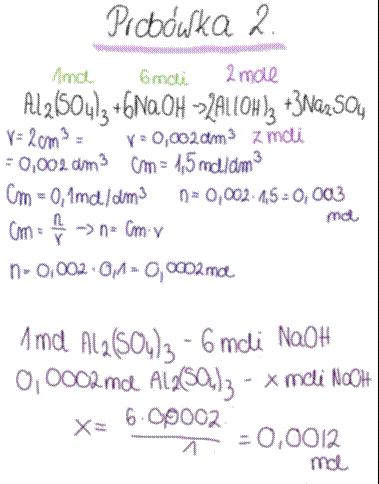 Probówka 2.
1mol 6moli 2mole
Al₂(SO₄)₃ + 6NaOH → 2Al(OH)₃ + 3Na₂SO₄
V = 2cm³ = V = 0,002dm³ z moli
= 0,002 dm³ Cm = 1,5 mol/dm³
Cm = 0,1mol/dm³ n = 0,002 · 1,5 = 0,003
mol
Cm = n/V → n = Cm · V
n = 0,002 · 0,1 = 0,0002mol
1mol Al₂(SO₄)₃ - 6moli NaOH
0,0002mol Al₂(SO₄)₃ - x moli NaOH
x = 6 · 0,0002 / 1 = 0,0012
mol